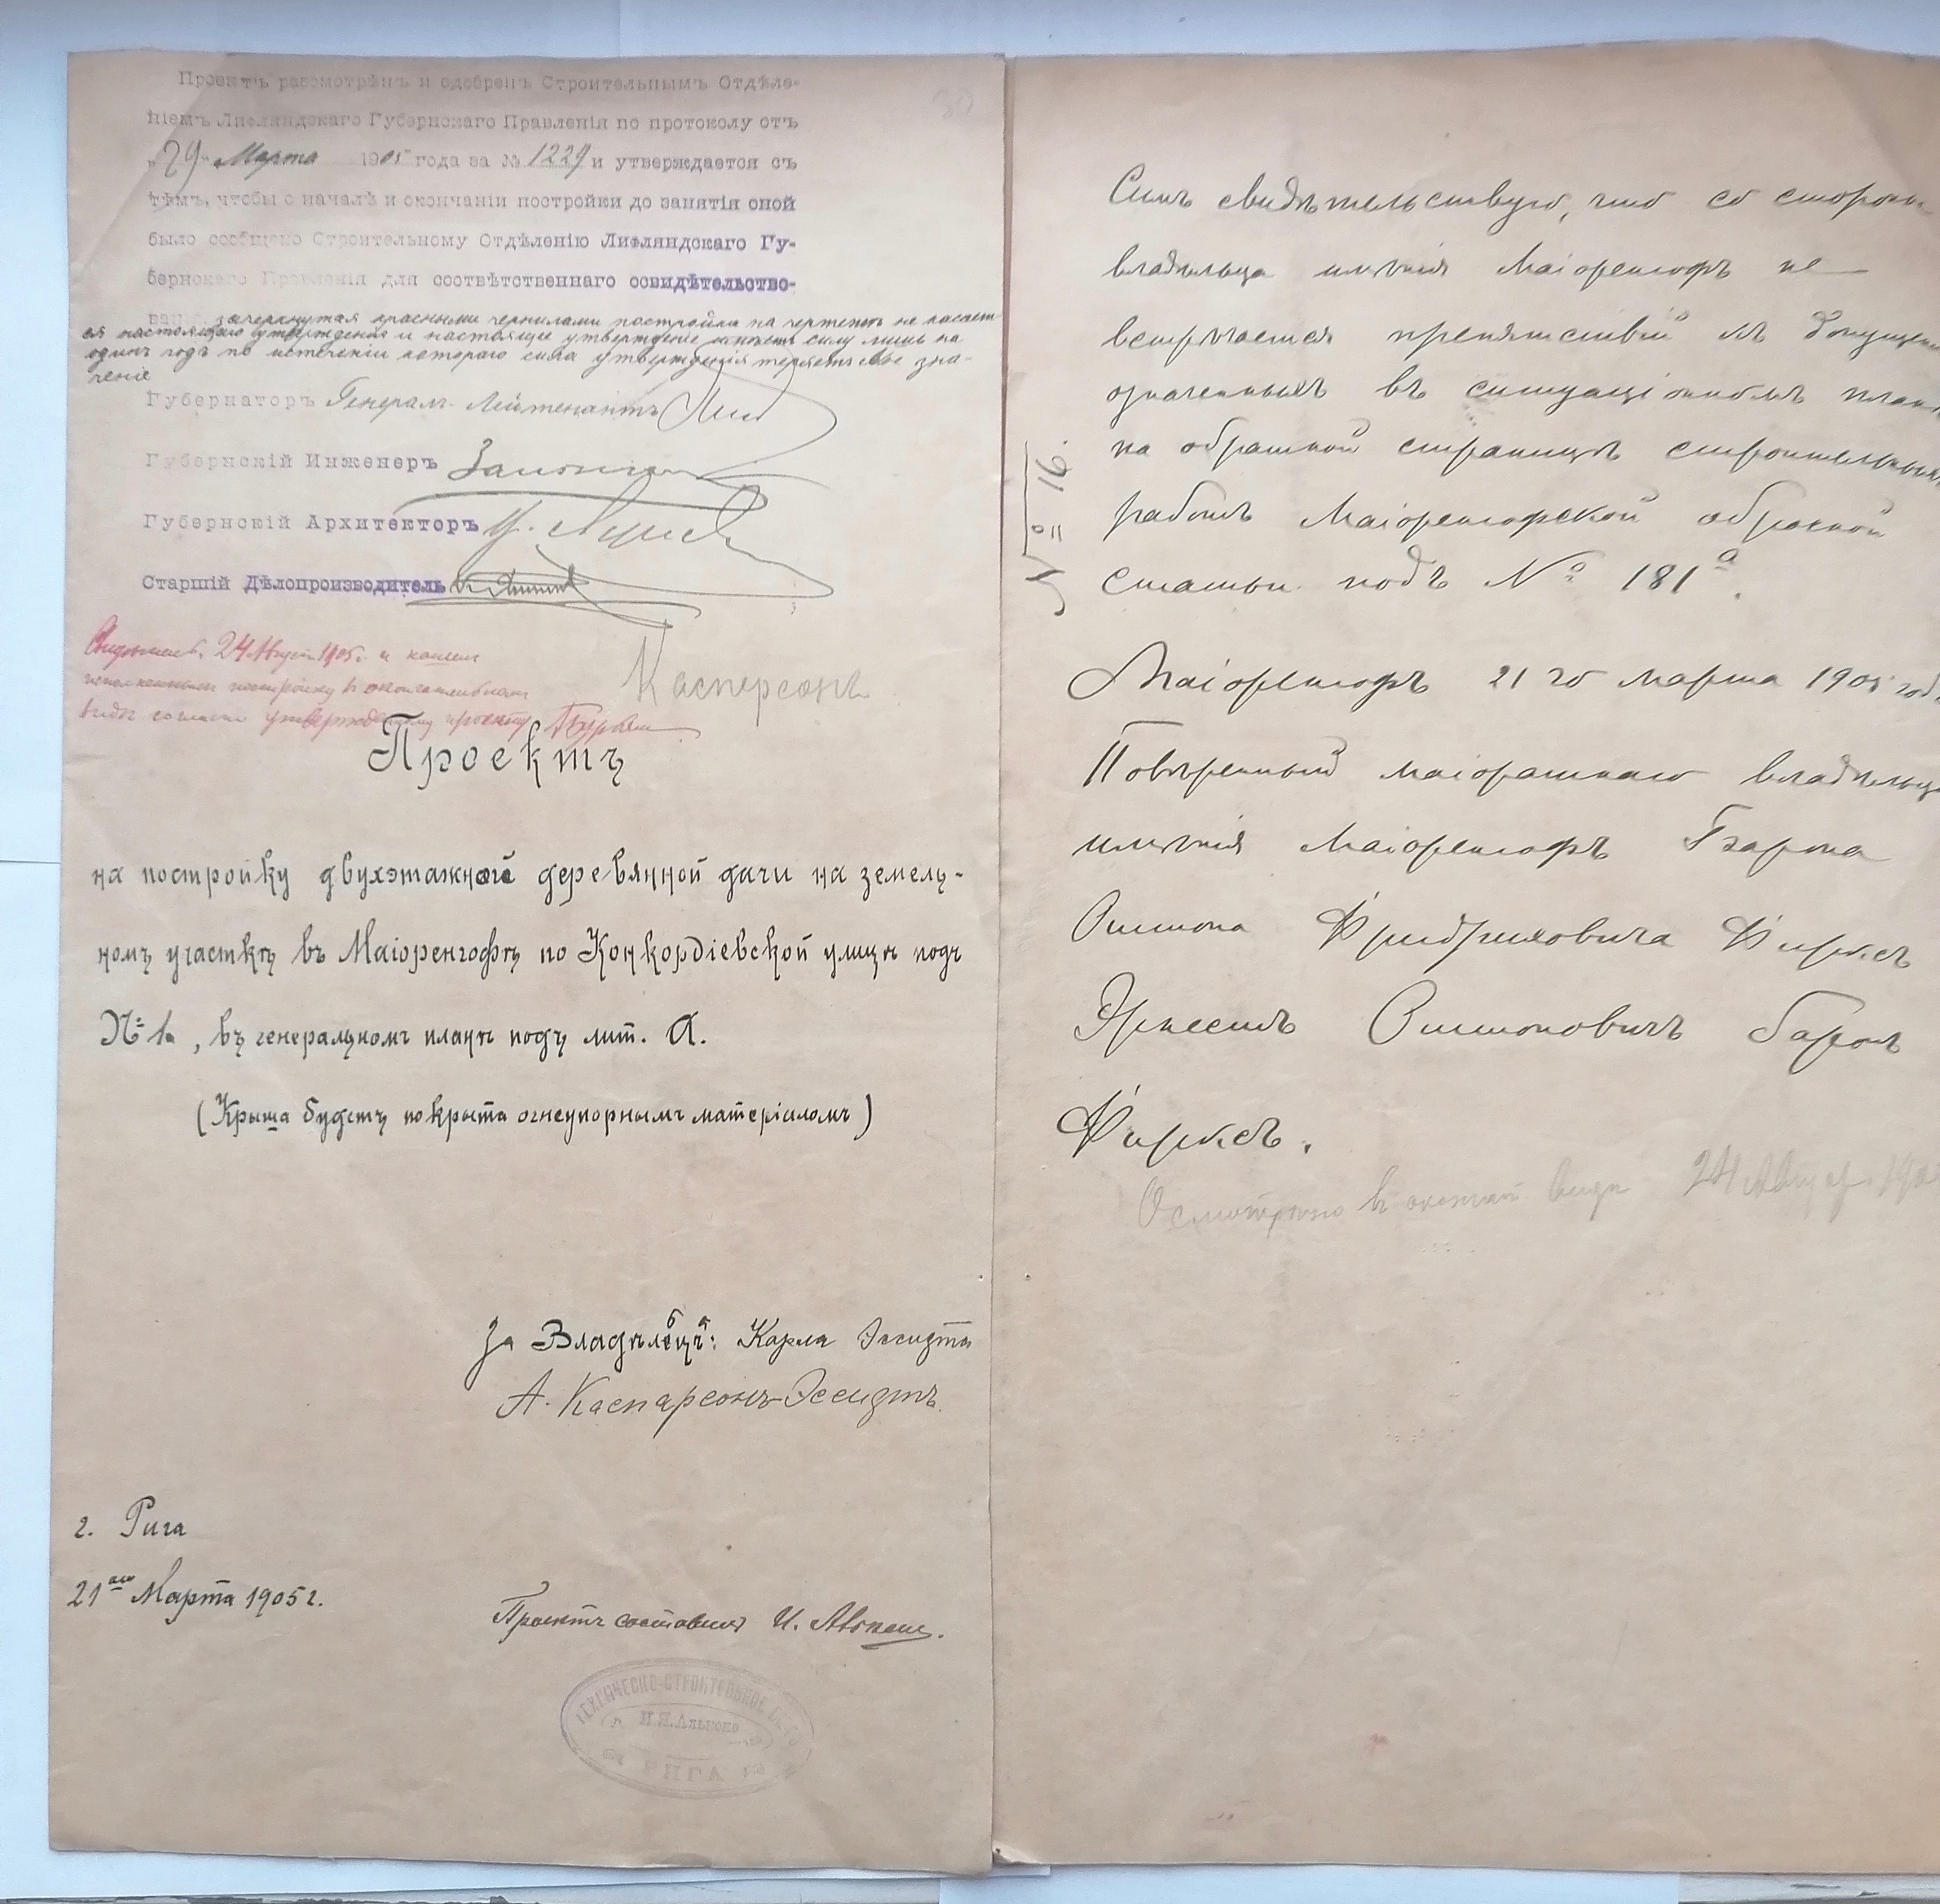 Проектъ разсмотрѣнъ и одобренъ Строительнымъ Отдѣле-
ніемъ Лифляндскаго Губернскаго Правленія по протоколу отъ
"29" Марта 1905 года за № 1229 и утверждается съ
тѣмъ, чтобы о началѣ и окончаніи постройки до занятія оной
было сообщено Строительному Отдѣленію Лифляндскаго Гу-
бернскаго Правленія для соотвѣтственнаго освидѣтельство-
зачеркнутая красными чернилами постройка на чертежѣ не касает-
ся настоящаго утвержденія и настоящее утвержденіе силу лишь на
одинъ годъ по истеченіи котораго сила утвержденія теряетъ свое зна-
ченіе
Губернаторъ Генералъ-Лейтенантъ
Губернскій Инженеръ
Губернскій Архитекторъ
Старшій Дѣлопроизводитель
24 Август 1905 г. и
постройку въ окончательномъ
видѣ согласно утвержденному проекту
Касперсонъ
Проектъ
на постройку двухэтажной деревянной дачи на земель-
номъ участкѣ въ Маіоренгофѣ по Конкордіевской улицѣ подъ
№ 1а, въ генеральномъ планѣ подъ лит. А.
(Крыша будетъ покрыта огнеупорнымъ матеріаломъ)
За Владѣльца: Карла Эссигта
А. Каспарсонъ-Эссигтъ.
г. Рига
21го Марта 1905 г.
Проектъ составилъ И.
ТЕХНИЧЕСКО-СТРОИТЕЛЬНОЕ БЮРО
И.Я.
РИГА
№ 16.
Симъ свидѣтельствую, что со стороны
владѣльца имѣнія Маіоренгофъ не
встрѣчается препятствій къ
означенныхъ въ ситуаціонномъ планѣ
на обратной страницѣ строительныхъ
работъ Маіоренгофской оброчной
статьи подъ № 181а.
Маіоренгофъ 21го марта 1905 год
Повѣренный маіоратнаго владѣльца
имѣнія Маіоренгофъ Барона
Оттона Фридриховича Фирксъ
Эрнестъ Оттоновичъ баронъ
Фирксъ.
Осмотрѣно въ видѣ 24